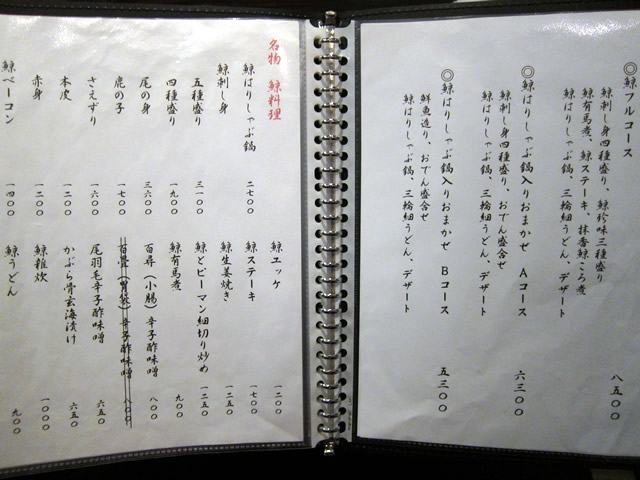 ◎鯨フルコース 八五〇〇
鯨刺し身四種盛り、鯨珍味三種盛り
鯨有馬煮、鯨ステーキ、抹香鯨ころ煮
鯨はりしゃぶ鍋、三輪細うどん、デザート
◎鯨はりしゃぶ鍋入りおまかせ Aコース 六三〇〇
鯨刺し身四種盛り、おでん盛合せ
鯨はりしゃぶ鍋、三輪細うどん、デザート
◎鯨はりしゃぶ鍋入りおまかせ Bコース 五三〇〇
鮮魚造り、おでん盛合せ
鯨はりしゃぶ鍋、三輪細うどん、デザート
名物 鯨料理
鯨はりしゃぶ鍋 二七〇〇
鯨刺し身
五種盛り 三一〇〇
四種盛り 一九〇〇
尾の身 三六〇〇
鹿の子 一七〇〇
さえずり 一六〇〇
本皮 一二〇〇
赤身 一二〇〇
鯨ベーコン 一四〇〇
鯨ユッケ 一二〇〇
鯨ステーキ 一七〇〇
鯨生姜焼き 一二五〇
鯨とピーマン細切り炒め 一二五〇
鯨有馬煮 九〇〇
百尋（小腸）辛子酢味噌 八〇〇
百畳（胃袋）辛子酢味噌 八〇〇
尾羽毛辛子酢味噌 六五〇
かぶら骨玄海漬け 六五〇
鯨雑炊 一〇〇〇
鯨うどん 九〇〇